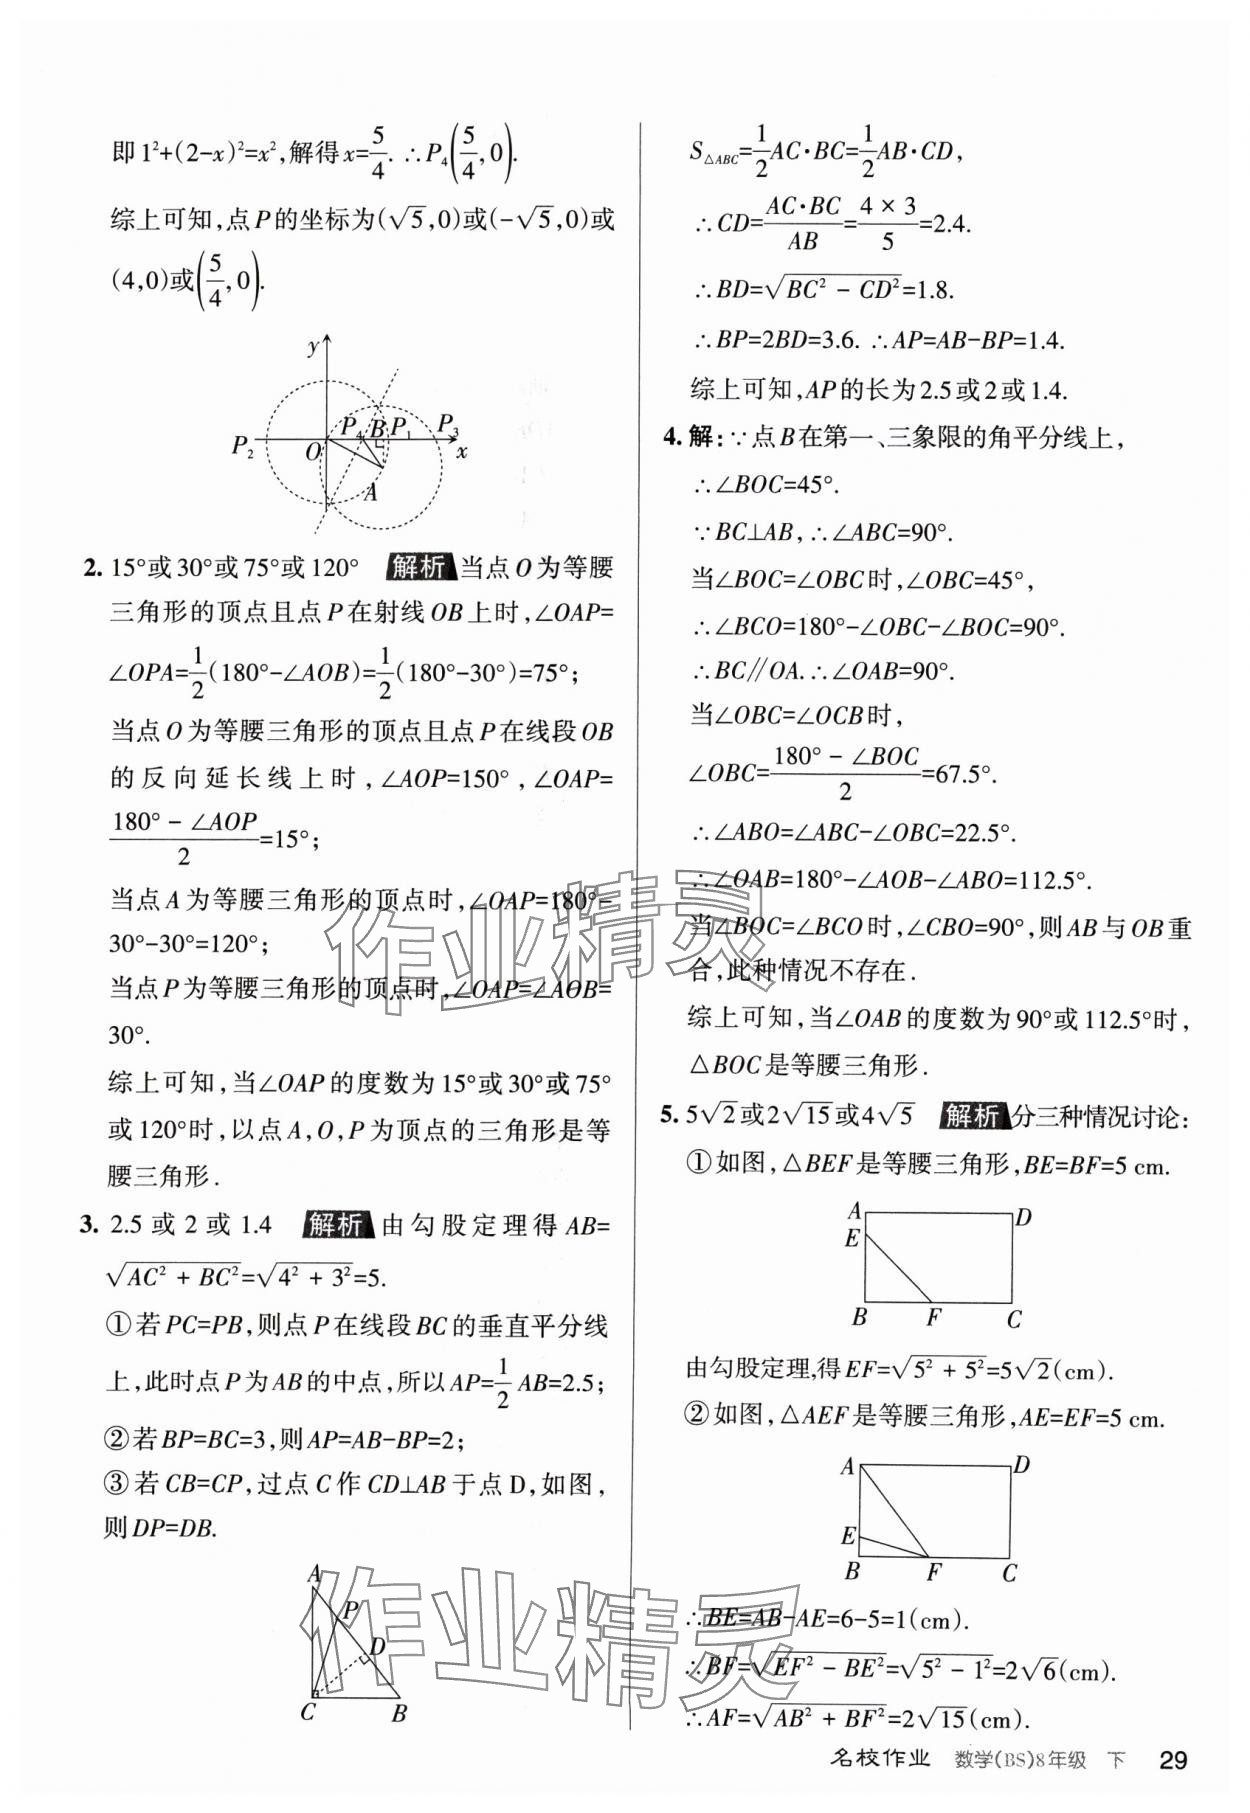 即1²+(2-x)²=x²,解得x=5/4. ∴P₄(5/4,0).
综上可知,点P的坐标为(√5,0)或(-√5,0)或
(4,0)或(5/4,0).
y
P₂ O P₄ B P₁ P₃ x
A
2. 15°或30°或75°或120° 解析 当点O为等腰
三角形的顶点且点P在射线OB上时,∠OAP=
∠OPA=1/2(180°-∠AOB)=1/2(180°-30°)=75°;
当点O为等腰三角形的顶点且点P在线段OB
的反向延长线上时,∠AOP=150°,∠OAP=
(180°-∠AOP)/2=15°;
当点A为等腰三角形的顶点时,∠OAP=180°-
30°-30°=120°;
当点P为等腰三角形的顶点时,∠OAP=∠AOB=
30°.
综上可知,当∠OAP的度数为15°或30°或75°
或120°时,以点A,O,P为顶点的三角形是等
腰三角形.
3. 2.5或2或1.4 解析 由勾股定理得AB=
√(AC²+BC²)=√(4²+3²)=5.
①若PC=PB,则点P在线段BC的垂直平分线
上,此时点P为AB的中点,所以AP=1/2 AB=2.5;
②若BP=BC=3,则AP=AB-BP=2;
③若CB=CP,过点C作CD⊥AB于点D,如图,
则DP=DB.
A
P
D
C B
S△ABC=1/2 AC·BC=1/2 AB·CD,
∴CD=(AC·BC)/AB=(4×3)/5=2.4.
∴BD=√(BC²-CD²)=1.8.
∴BP=2BD=3.6. ∴AP=AB-BP=1.4.
综上可知,AP的长为2.5或2或1.4.
4. 解:∵点B在第一、三象限的角平分线上,
∴∠BOC=45°.
∵BC⊥AB,∴∠ABC=90°.
当∠BOC=∠OBC时,∠OBC=45°,
∴∠BCO=180°-∠OBC-∠BOC=90°.
∴BC∥OA.∴∠OAB=90°.
当∠OBC=∠OCB时,
∠OBC=(180°-∠BOC)/2=67.5°.
∴∠ABO=∠ABC-∠OBC=22.5°.
∴∠OAB=180°-∠AOB-∠ABO=112.5°.
当∠BOC=∠BCO时,∠CBO=90°,则AB与OB重
合,此种情况不存在.
综上可知,当∠OAB的度数为90°或112.5°时,
△BOC是等腰三角形.
5. 5√2或2√15或4√5 解析 分三种情况讨论:
①如图,△BEF是等腰三角形,BE=BF=5 cm.
A D
E
B F C
由勾股定理,得EF=√(5²+5²)=5√2(cm).
②如图,△AEF是等腰三角形,AE=EF=5 cm.
A D
E
B F C
∴BE=AB-AE=6-5=1(cm).
∴BF=√(EF²-BE²)=√(5²-1²)=2√6(cm).
∴AF=√(AB²+BF²)=2√15(cm).
作业精灵
作业精灵
名校作业 数学(BS)8年级 下 29